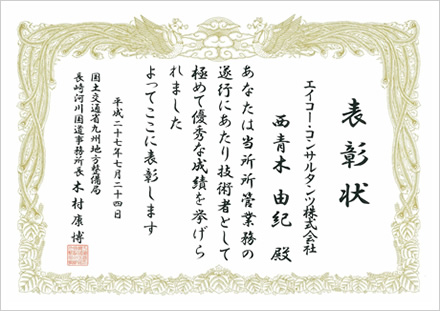 表彰状
エイコー・コンサルタンツ株式会社
西青木 由紀 殿
あなたは当所所管業務の
遂行にあたり技術者として
極めて優秀な成績を挙げら
れました
よってここに表彰します
平成二十七年七月二十四日
国土交通省九州地方整備局
長崎河川国道事務所長 木村康博